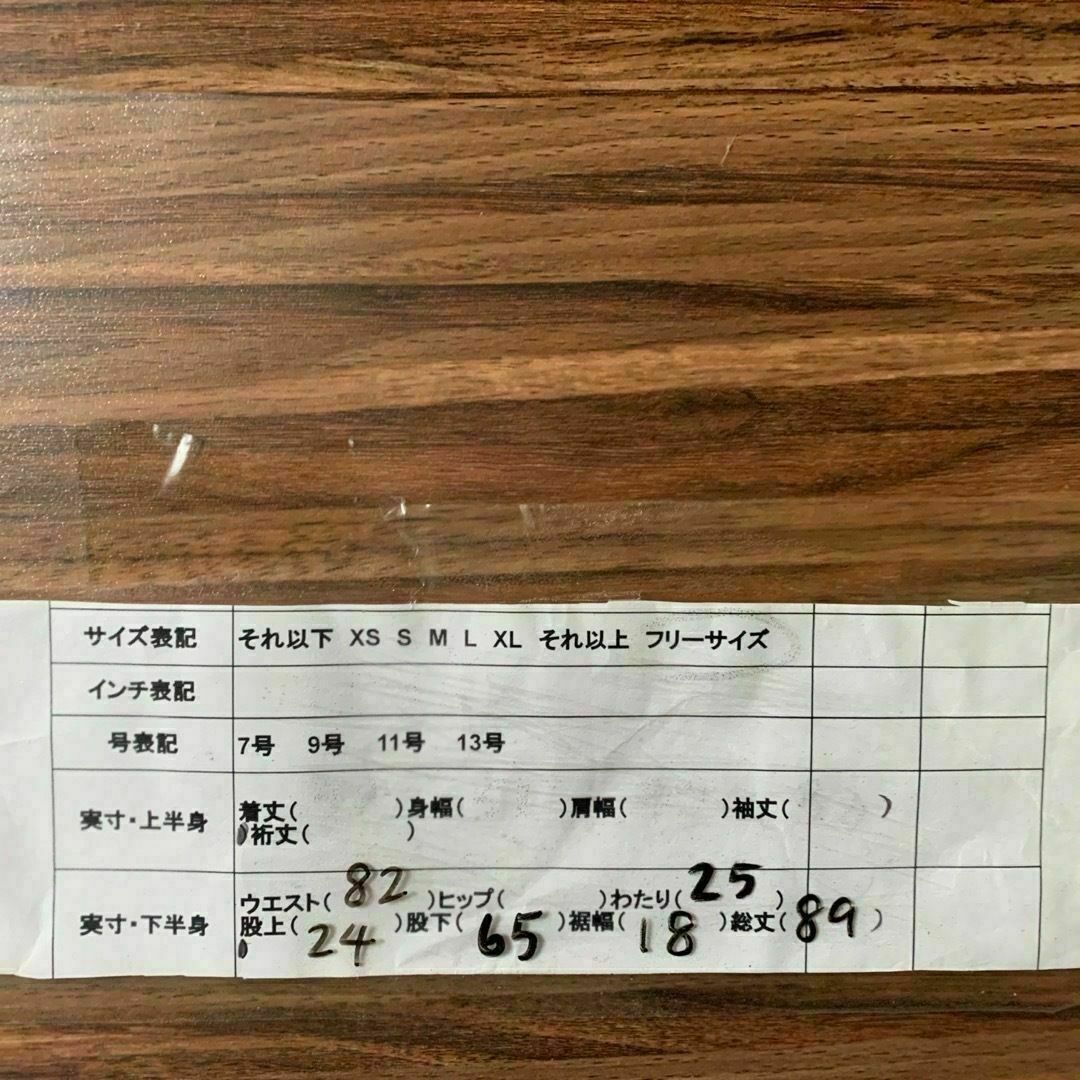 サイズ表記 それ以下 XS S M L XL それ以上 フリーサイズ
インチ表記
号表記 7号 9号 11号 13号
実寸・上半身 着丈( )身幅( )肩幅( )袖丈( )
)裄丈( )
実寸・下半身 ウエスト( 82 )ヒップ( )わたり( 25 )
股上( 24 )股下( 65 )裾幅( 18 )総丈( 89 )
)